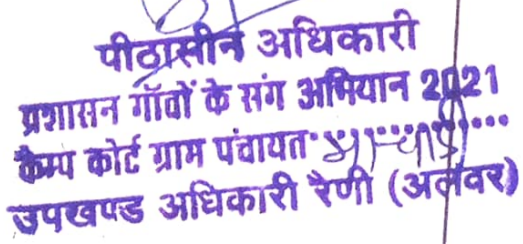 पीठासीन अधिकारी
प्रशासन गॉवों के संग अभियान 2021
कैम्प कोर्ट ग्राम पंचायत
उपखण्ड अधिकारी रैणी (अलवर)